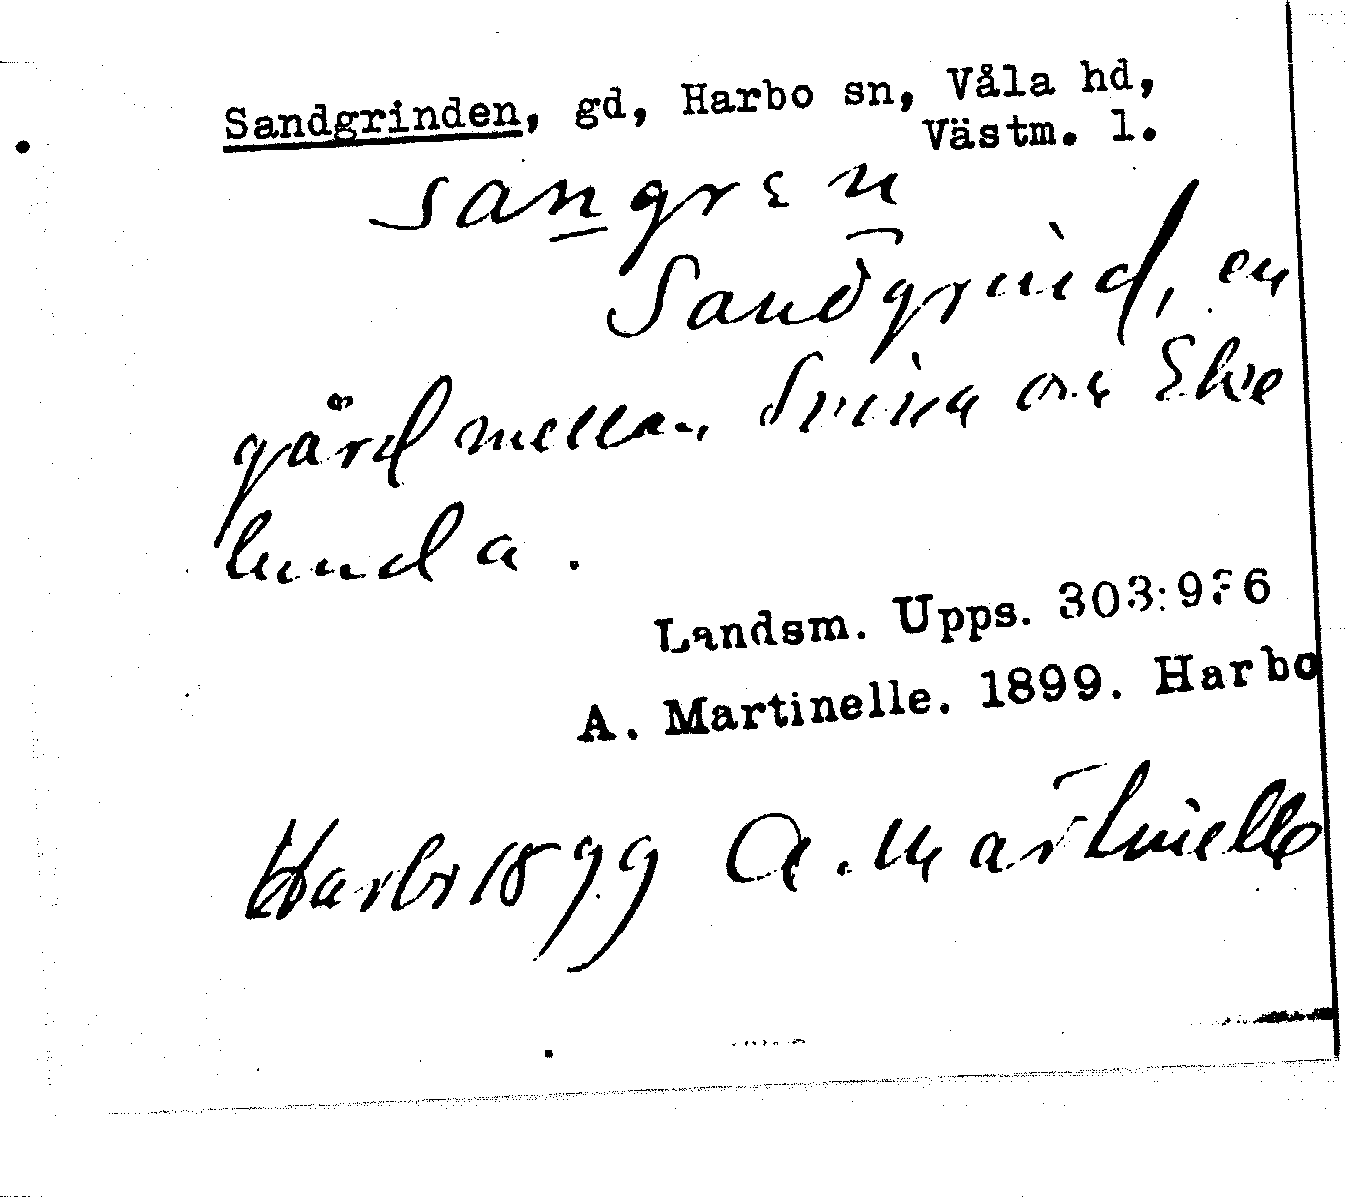 Sandgrinden, gd, Harbo sn, Våla hd,
Västm. l.
sangrɛn
Sandgrind, en
gård mellan Svina och Eke
lunda.
Landsm. Upps. 303:936
A. Martinelle. 1899. Harbo
Harbo 1899 A. Martinelle